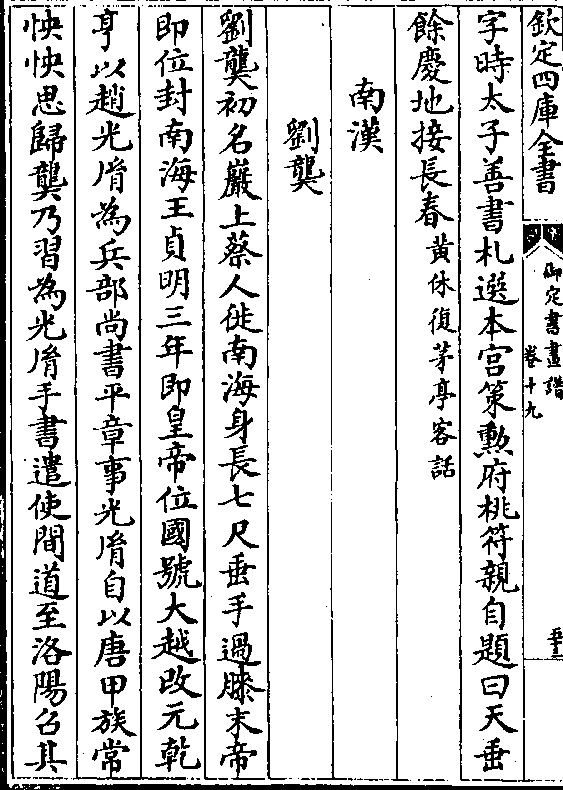 欽定四庫全書
御定書畫譜
卷十九
字時太子善書札選本宫策勲府桃符親自題曰天垂
餘慶地接長春黄休復茅亭客話
南漢
劉龑
劉龑初名巖上蔡人徙南海身長七尺垂手過膝末帝
即位封南海王貞明三年即皇帝位國號大越改元乾
亨以趙光裔為兵部尚書平章事光裔自以唐甲族常
怏怏思歸龑乃習為光裔手書遣使間道至洛陽召其